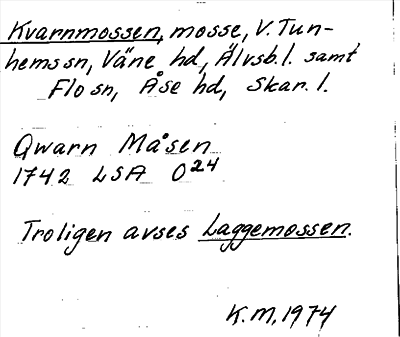 Kvarnmossen, mosse, V. Tun-
hems sn, Väne hd, Älvsb. l. samt
Flo sn, Åse hd, Skar. l.
Qwarn Måsen
1742 LSA O24
Troligen avses Laggemossen.
K.M. 1974